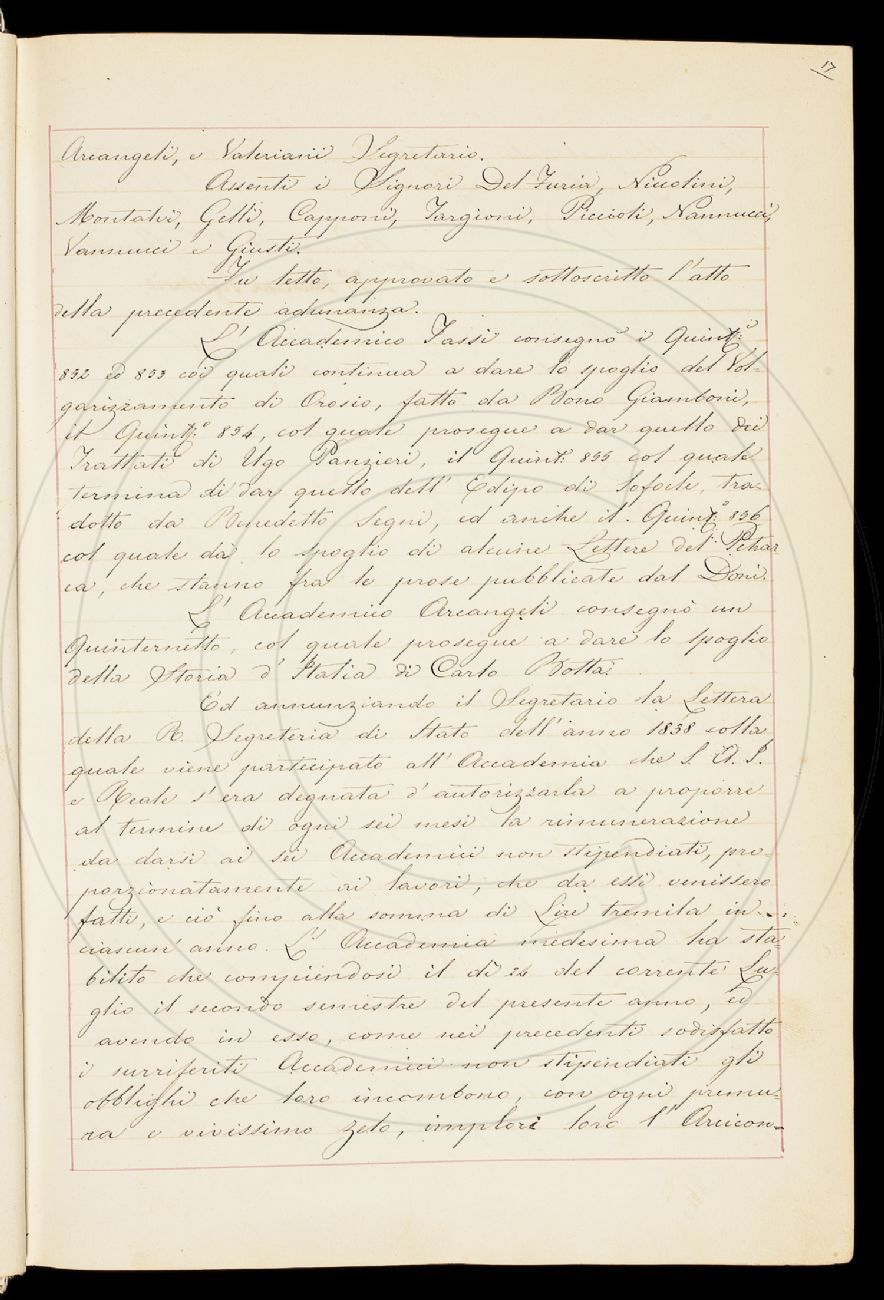 17
Arcangeli, e Valeriani Segretario.
Assenti i Signori Del Furia, Niccolini,
Montalvi, Gelli, Capponi, Targioni, Piccioli, Nannucci,
Vannucci e Giusti.
Fu letto, approvato e sottoscritto l'atto
della precedente adunanza.
L'Accademico Tassi consegnò i Quint.i
832 ed 833 coi quali continua a dare lo spoglio del Vol-
garizzamento di Orosio, fatto da Bono Giamboni,
il Quint.o 834, col quale prosegue a dar quello dei
Trattati di Ugo Panzieri, il Quint.o 835 col quale
termina di dar quello dell'Edipo di Sofocle, tra-
dotto da Benedetto Segni, ed anche il Quint.o 836
col quale dà lo spoglio di alcune Lettere del Petrar
ca, che stanno fra le prose pubblicate dal Doni.
L'Accademico Arcangeli consegnò un
Quinternetto, col quale prosegue a dare lo spoglio
della Storia d'Italia di Carlo Botta.
Ed annunziando il Segretario la Lettera
della R. Segreteria di Stato dell'anno 1838 colla
quale viene partecipato all'Accademia che S. A. I.
e Reale s'era degnata d'autorizzarla a proporre
al termine di ogni sei mesi la rimunerazione
da darsi ai sei Accademici non stipendiati, pro-
porzionatamente ai lavori, che da essi venissero
fatti, e ciò fino alla somma di Lire tremila in
ciascun'anno. L'Accademia medesima ha sta-
bilito che compiendosi il dì 24 del corrente Lu-
glio il secondo semestre del presente anno, ed
avendo in esso, come nei precedenti sodisfatto
i surriferiti Accademici non stipendiati gli
obblighi che loro incombono, con ogni premu-
ra e vivissimo zelo, implori loro l'Arcicon-